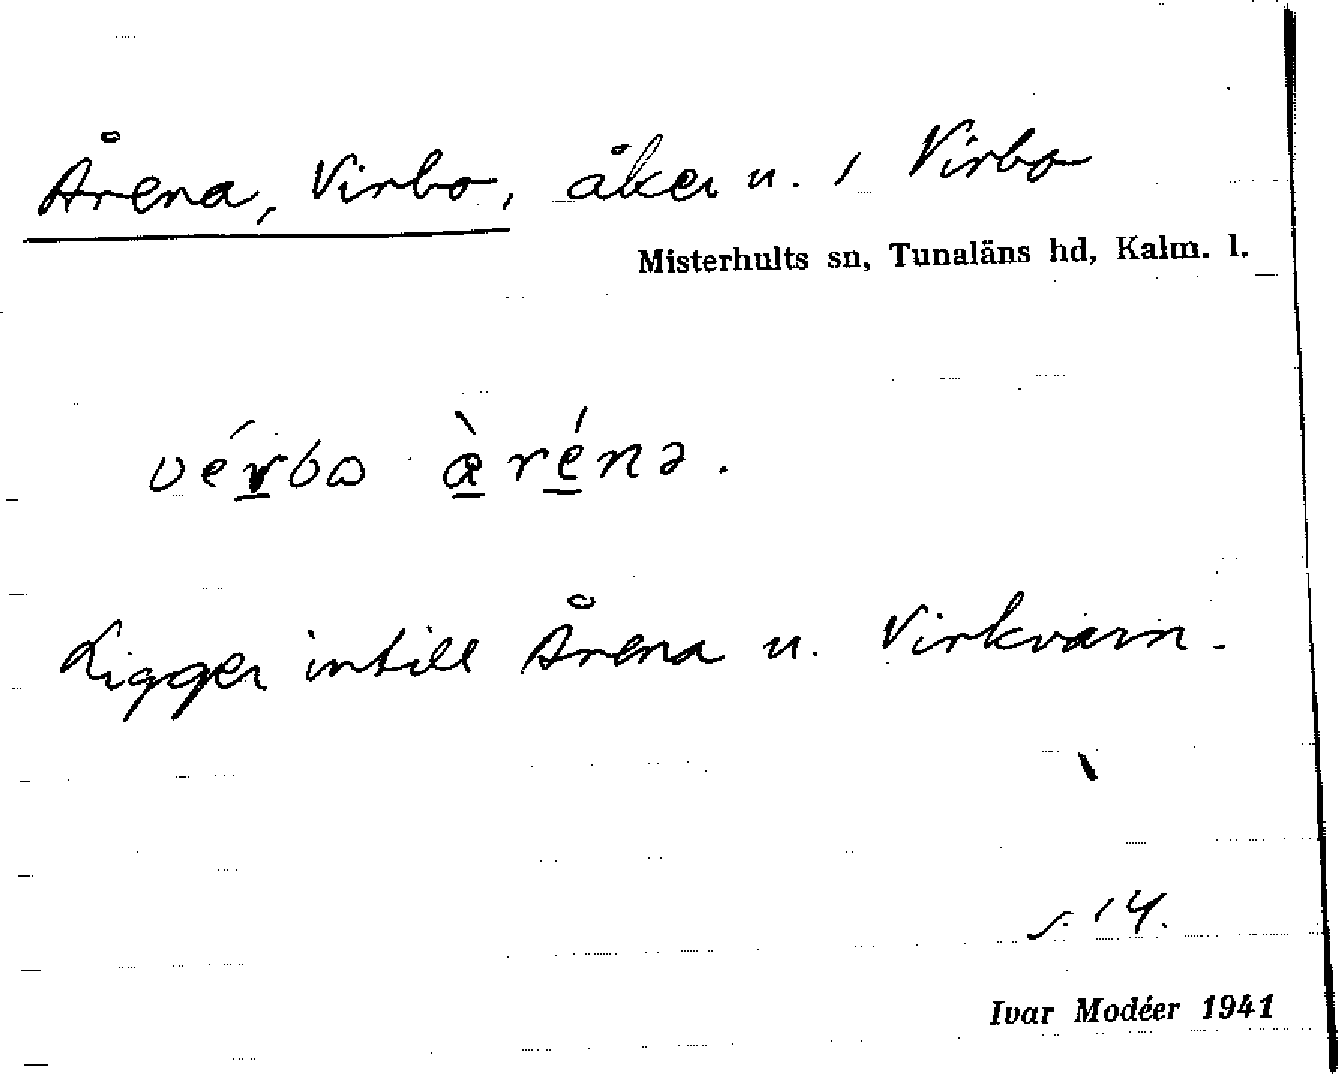 Årena, Virbo, åker u. 1 Virbo
Misterhults sn, Tunaläns hd, Kalm. l.
vérbo àréna.
Ligger intill Årena u. Virkvarn.
s. 14.
Ivar Modéer 1941